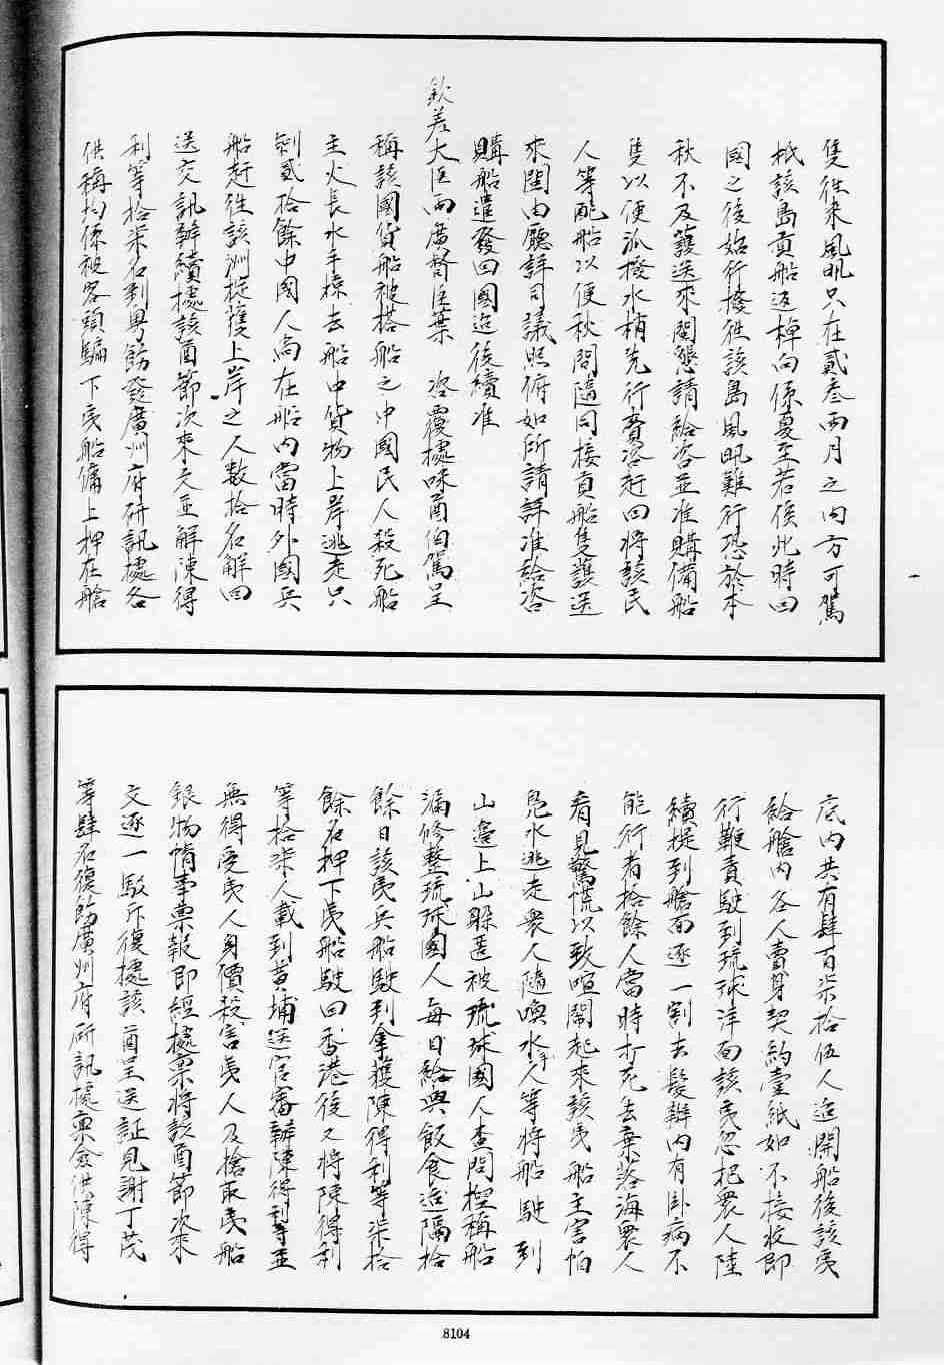 隻往來風帆只在貳叁兩月之內方可駕
抵該島貢船返棹向係夏至若俟此時回
國之後始行撥往該島風帆難行恐於本
秋不及護送來閩懇請給咨並准購備船
隻以便派撥水梢先行賫咨赶回將該民
人等配船以便秋間隨同接貢船隻護送
來閩由廳詳司議照俯如所請詳准給咨
購船遣發回國迨後續准
欽差大臣兩廣督臣葉 咨覆據咪酋伯駕呈
稱該國貨船被搭船之中國民人殺死船
主火長水手標去船中貨物上岸逃走只
剩貳拾餘中國人尚在船內當時外國兵
船赶往該洲捉獲上岸之人數拾名解回
送交訊辦續據該酋節次來文並解陳得
利等拾柒名到粵飭發廣州府研訊據各
供稱均係被客頭騙下夷船傭上押在艙
底內共有肆百柒拾伍人迨開船後該夷
給艙內各人賣身契約壹紙如不接收即
行鞭責駛到琉球洋面該夷忽把眾人陸
續提到艙面逐一割去髮辮內有臥病不
能行者拾餘人當時打死去棄落海眾人
看見驚慌以致喧鬧起來該夷船主害怕
鳧水逃走眾人隨喚水手人等將船駛到
山邊上山躲匿被琉球國人查問捏稱船
漏修整琉球國人每日給與飯食迨隔拾
餘日該夷兵船駛到拿獲陳得利等柒拾
餘名押下夷船駛回香港後又將陳得利
等拾柒人載到黃埔送官審辦陳得利等並
無得受夷人身價殺害夷人及搶取夷船
銀物情事稟報即經據稟將該酋節次來
文逐一駁斥復據該酋呈送証見謝丁茂
等肆名復飭廣州府所訊據稟僉供陳得
8104